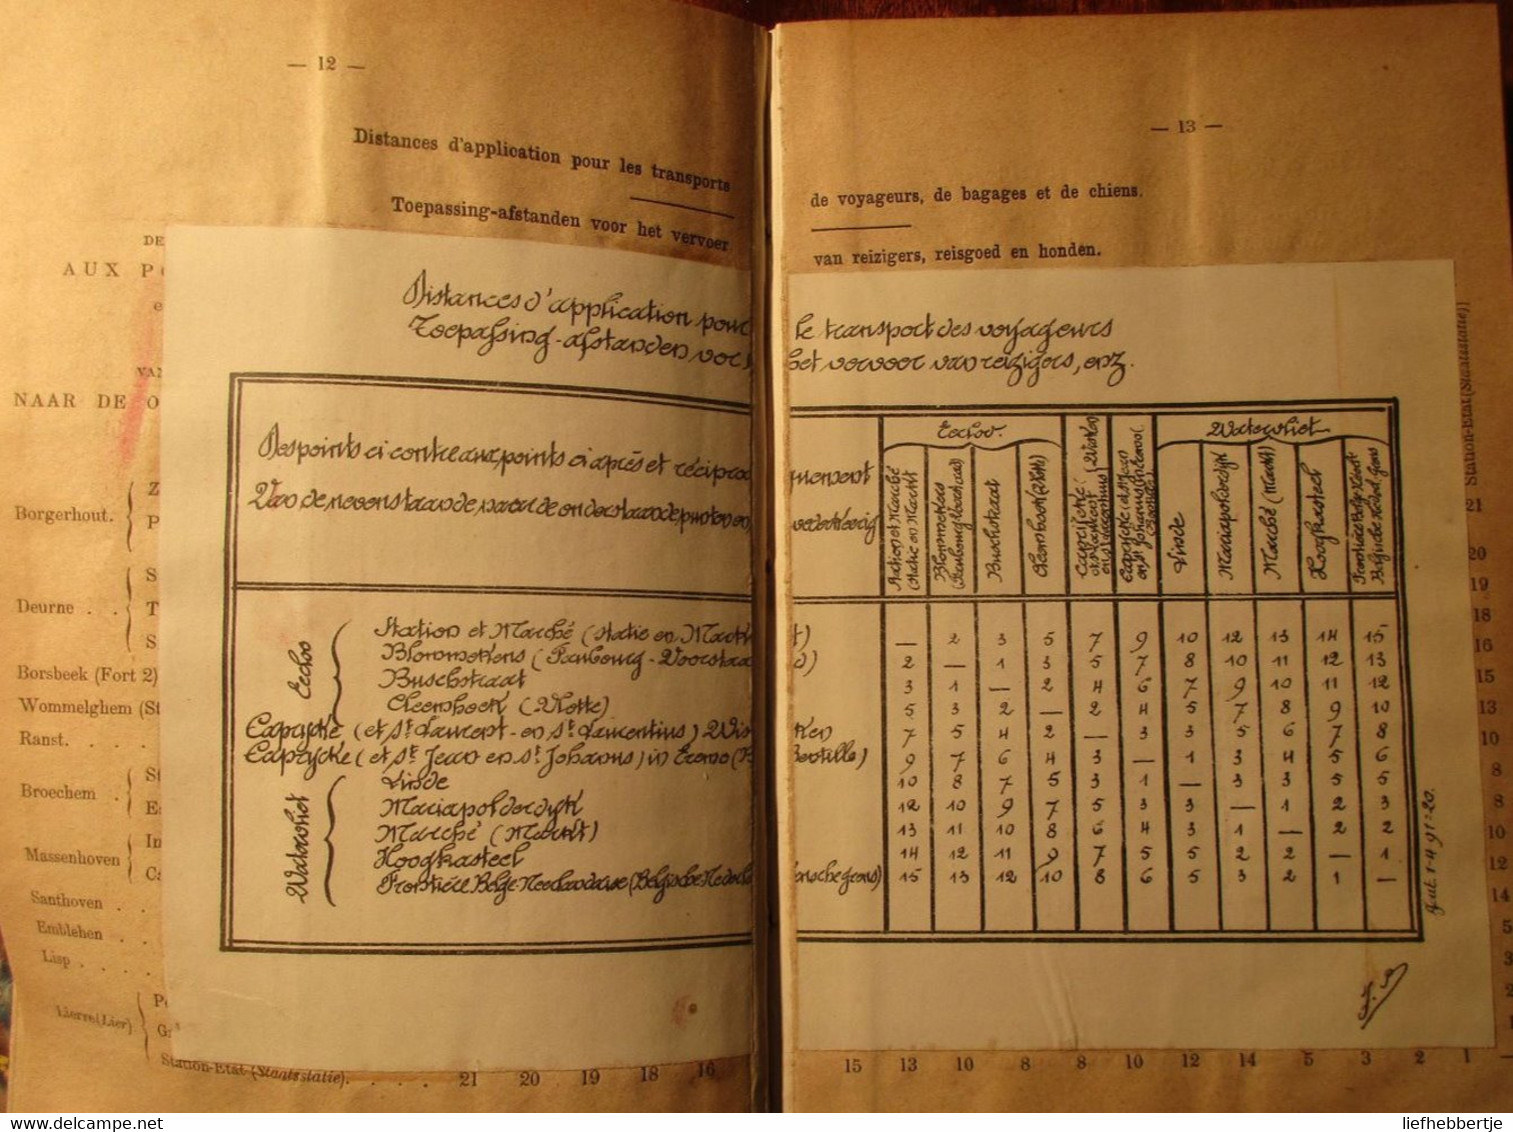 — 12 —
Distances d'application pour les transports
Toepassing-afstanden voor het vervoer
DE
AUX PO
VAN
NAAR DE O
Borgerhout.
Z
P
Deurne . .
S
T
S
Borsbeek (Fort 2)
Wommelghem (St
Ranst. . . .
Broechem .
St
Es
Massenhoven
In
Ca
Santhoven . .
Emblehem . .
Lisp . . . .
Lierre (Lier)
Station-Etat (Staatsstatie). . . . 21 20 19 18 16
Distances d'application pour
Toepassing-afstanden voor
Des points ci contre aux points ci après et réciproq
Van de nevenstaande naar de onderstaande punten en
Eecloo
Station et Marché (Statie en Markt
Blommekens (Faubourg-Voorstad
Buschstraat
Cleemhoek (Vlotte)
Caprycke (et St Laurent - en St Laurentius)
Caprycke (et St Jean en St Johannus) in Eremo
Watervliet
Linde
Mariapolderdyk
Marché (Markt)
Hoogkasteel
Frontière Belge-Neerlandaise (Belgische Nederl
— 13 —
de voyageurs, de bagages et de chiens.
van reizigers, reisgoed en honden.
le transport des voyageurs
het vervoer van reizigers, enz.
quement
wederkeerig
Eecloo.
Watervliet.
Station et Marché
Statie en Markt
Blommekens
Buschstraat
Cleemhoek (Vlotte)
Linde
Mariapolderdyk
Marché (Markt)
Hoogkasteel
t) — 2 3 5 7 9 10 12 13 14 15
d) 2 — 1 3 5 7 8 10 11 12 13
3 1 — 2 4 6 7 9 10 11 12
5 3 2 — 2 4 5 7 8 9 10
ken 7 5 4 2 — 3 3 5 6 7 8
Bentille) 9 7 6 4 3 — 1 3 4 5 6
10 8 7 5 3 1 — 3 3 5 5
12 10 9 7 5 3 3 — 1 2 3
13 11 10 8 6 4 3 1 — 2 2
14 12 11 9 7 5 5 2 2 — 1
15 13 12 10 8 6 5 3 2 1 —
Station-Etat (Staatsstatie)
21
20
19
18
16
15
13
10
8
8
10
12
14
5
3
2
1
15 13 10 8 8 10 12 14 5 3 2 1 —
delcampe.net
liefhebbertje